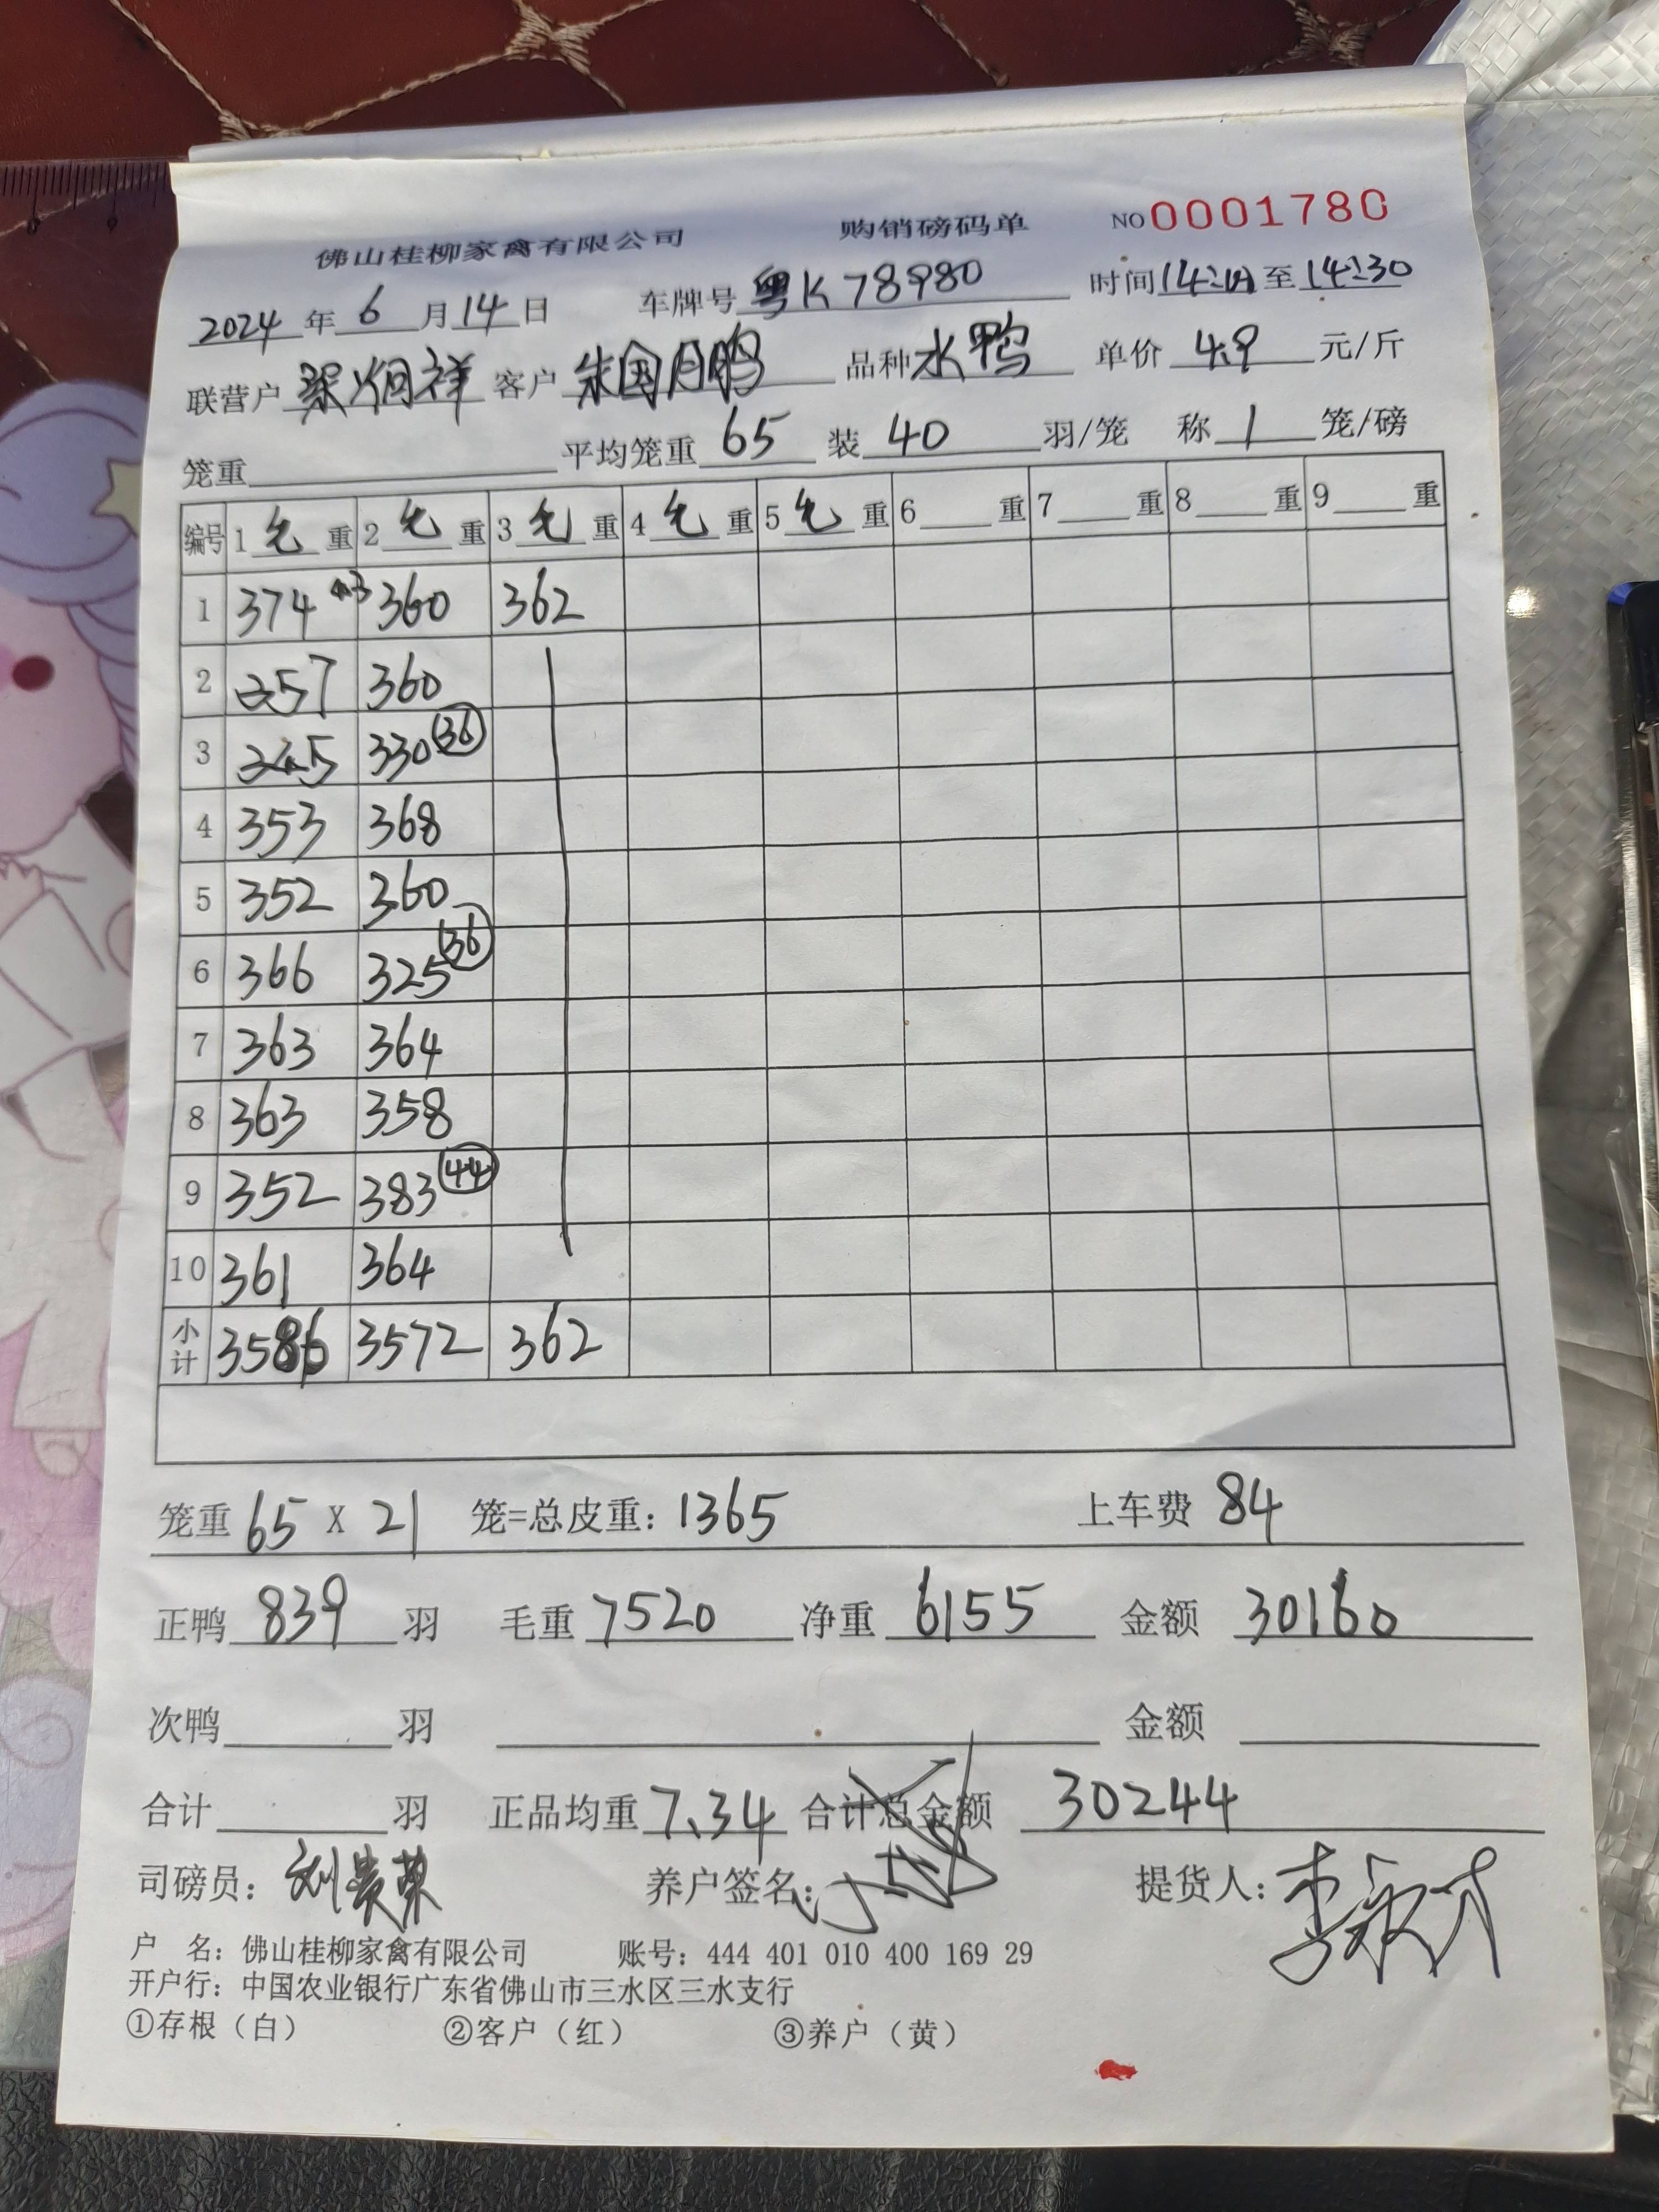 佛山桂柳家禽有限公司 购销磅码单 NO 0001780
2024 年 6 月 14 日 车牌号 粤K78980 时间 至 14:30
联营户 梁炯祥 客户 朱国 品种 水鸭 单价 4.9 元/斤
笼重 平均笼重 65 装 40 羽/笼 称 1 笼/磅
编号 1 毛 重 2 毛 重 3 毛 重 4 毛 重 5 毛 重 6 重 7 重 8 重 9 重
1 374 360 362
2 357 360
3 345 330 (36)
4 353 368
5 352 360
6 366 325 (36)
7 363 364
8 363 358
9 352 383 (44)
10 361 364
小计 3586 3572 362
笼重 65 X 21 笼=总皮重: 1365 上车费 84
正鸭 839 羽 毛重 7520 净重 6155 金额 30160
次鸭 羽 金额
合计 羽 正品均重 7.34 合计总金额 30244
司磅员: 刘贵荣 养户签名: 提货人:
户 名: 佛山桂柳家禽有限公司 账号: 444 401 010 400 169 29
开户行: 中国农业银行广东省佛山市三水区三水支行
①存根（白） ②客户（红） ③养户（黄）